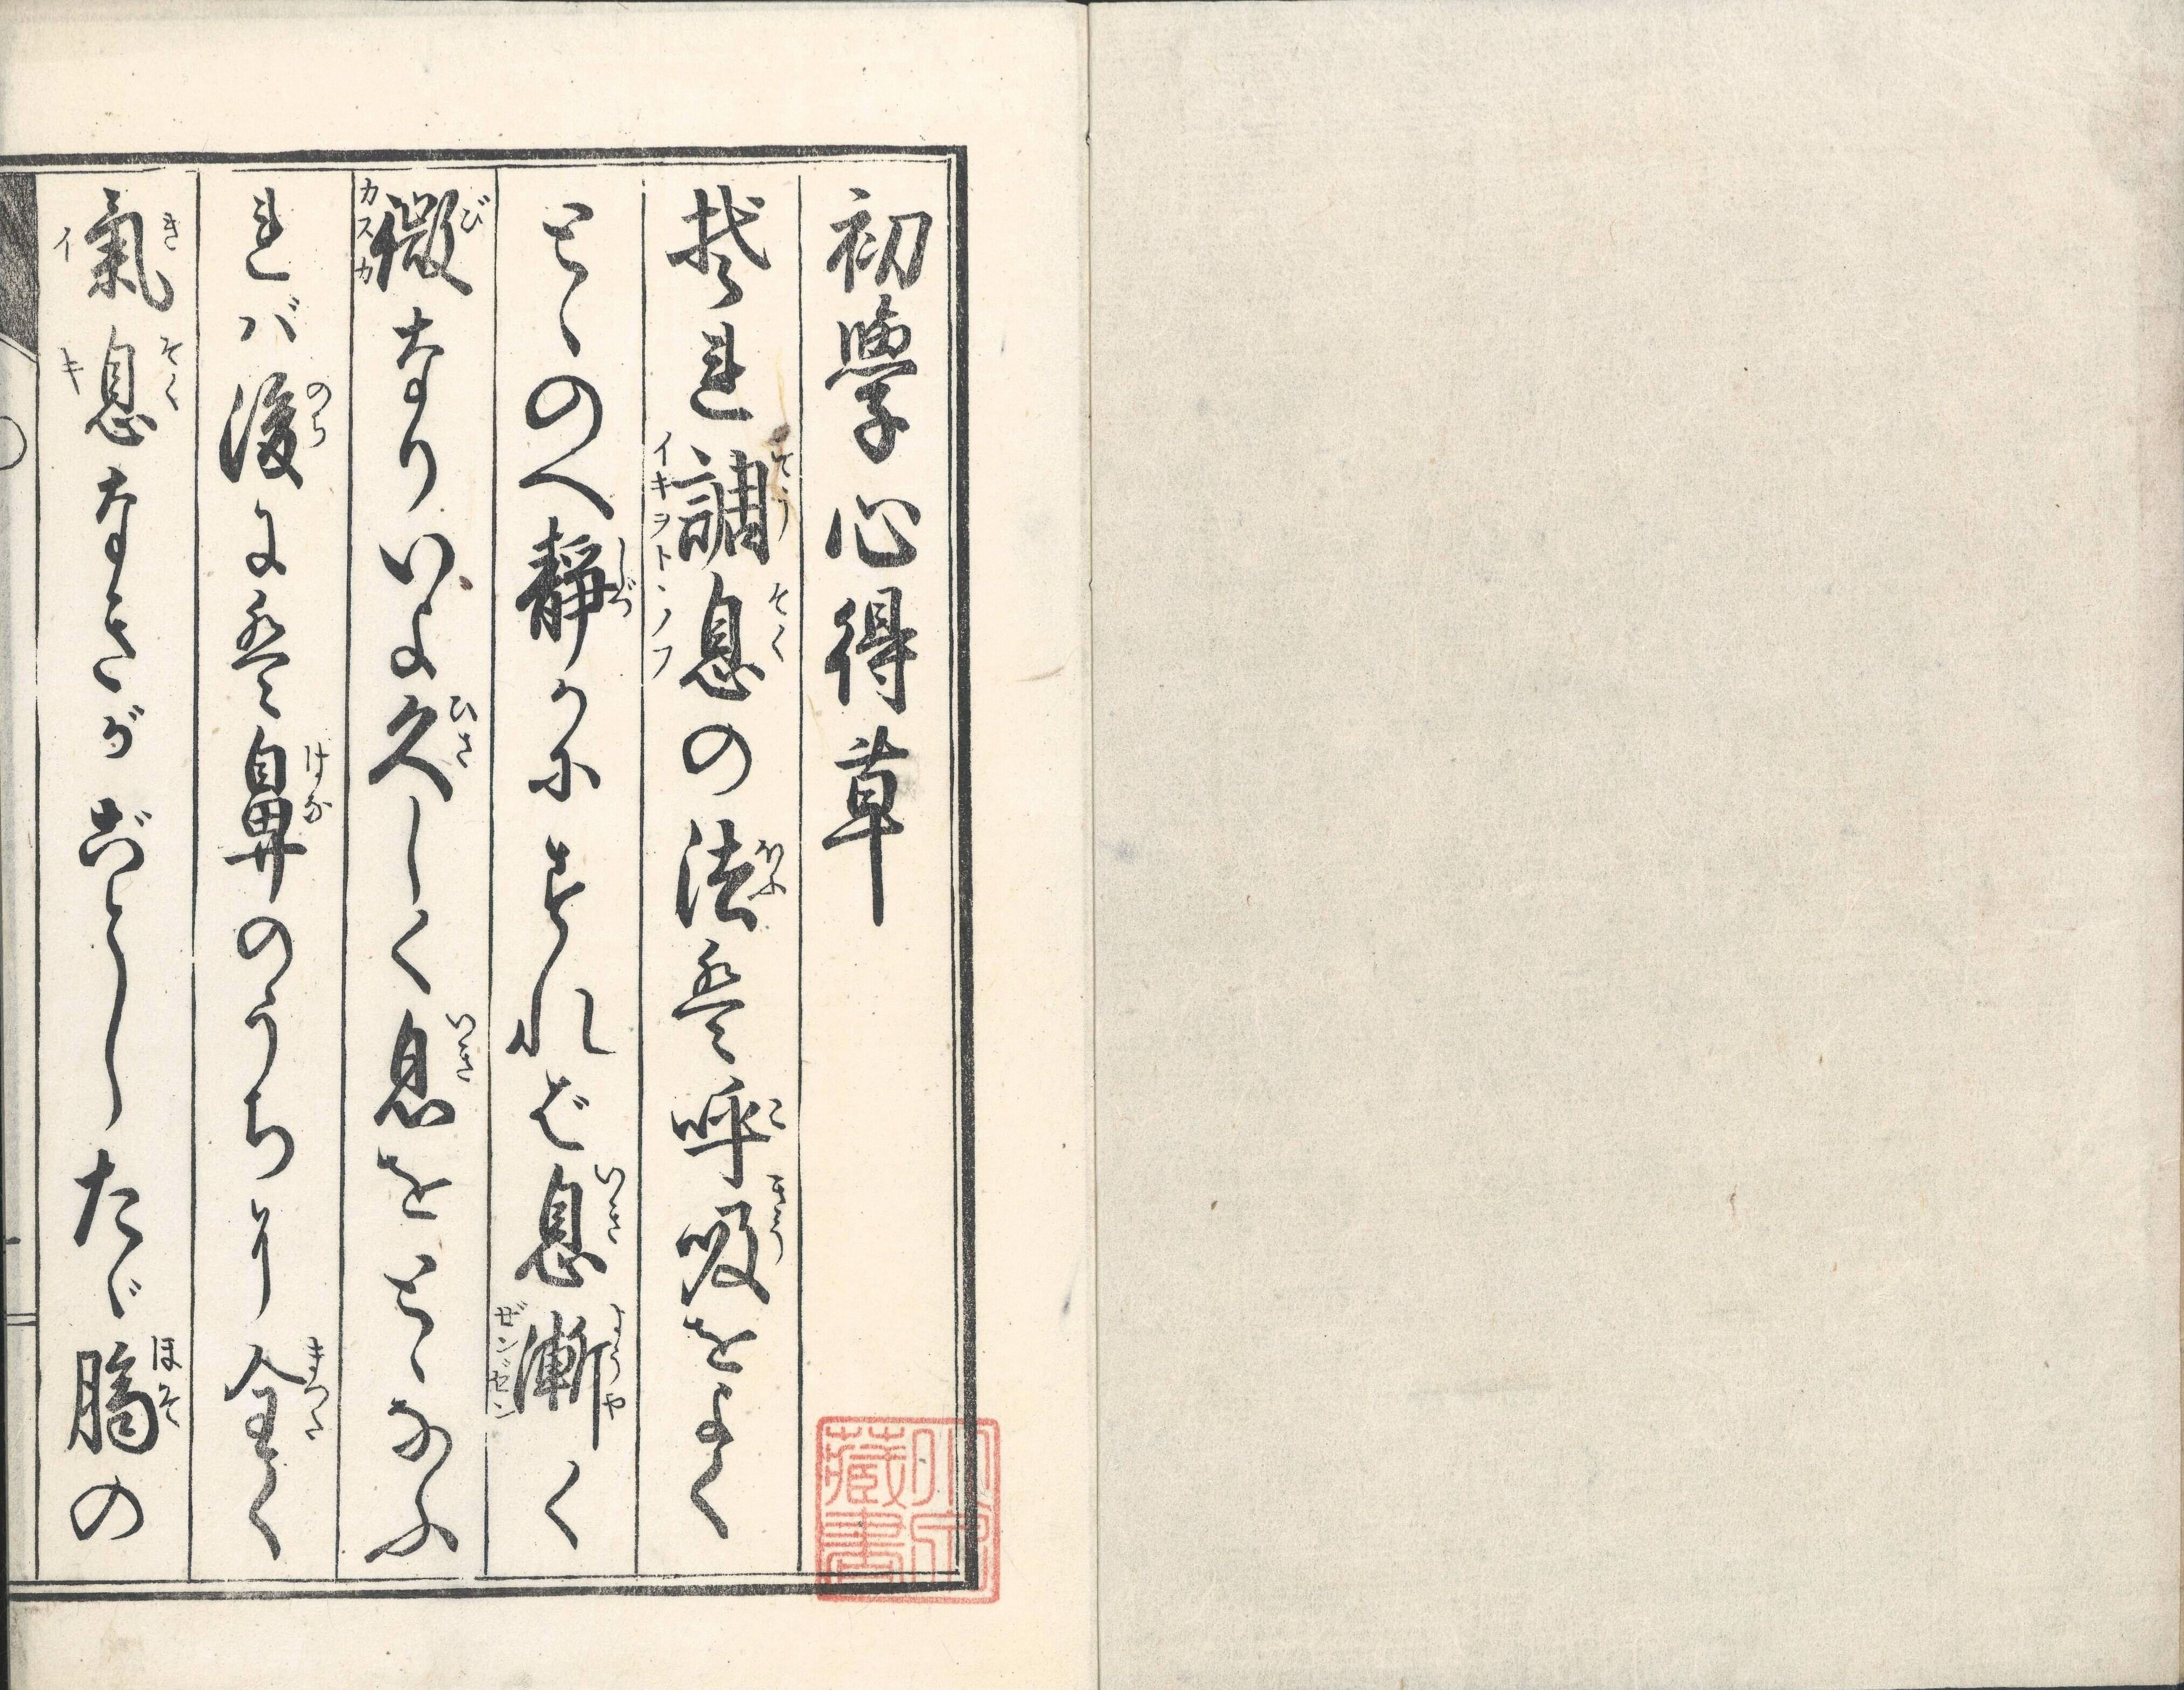 初學心得草
それ調息の法は呼吸をよく
とゝのへ靜かにすれば息漸く
微なりいよ久しく息をとゝのふ
れバ後には鼻のうちより全く
氣息なきがごとしたゞ臍の
藏書